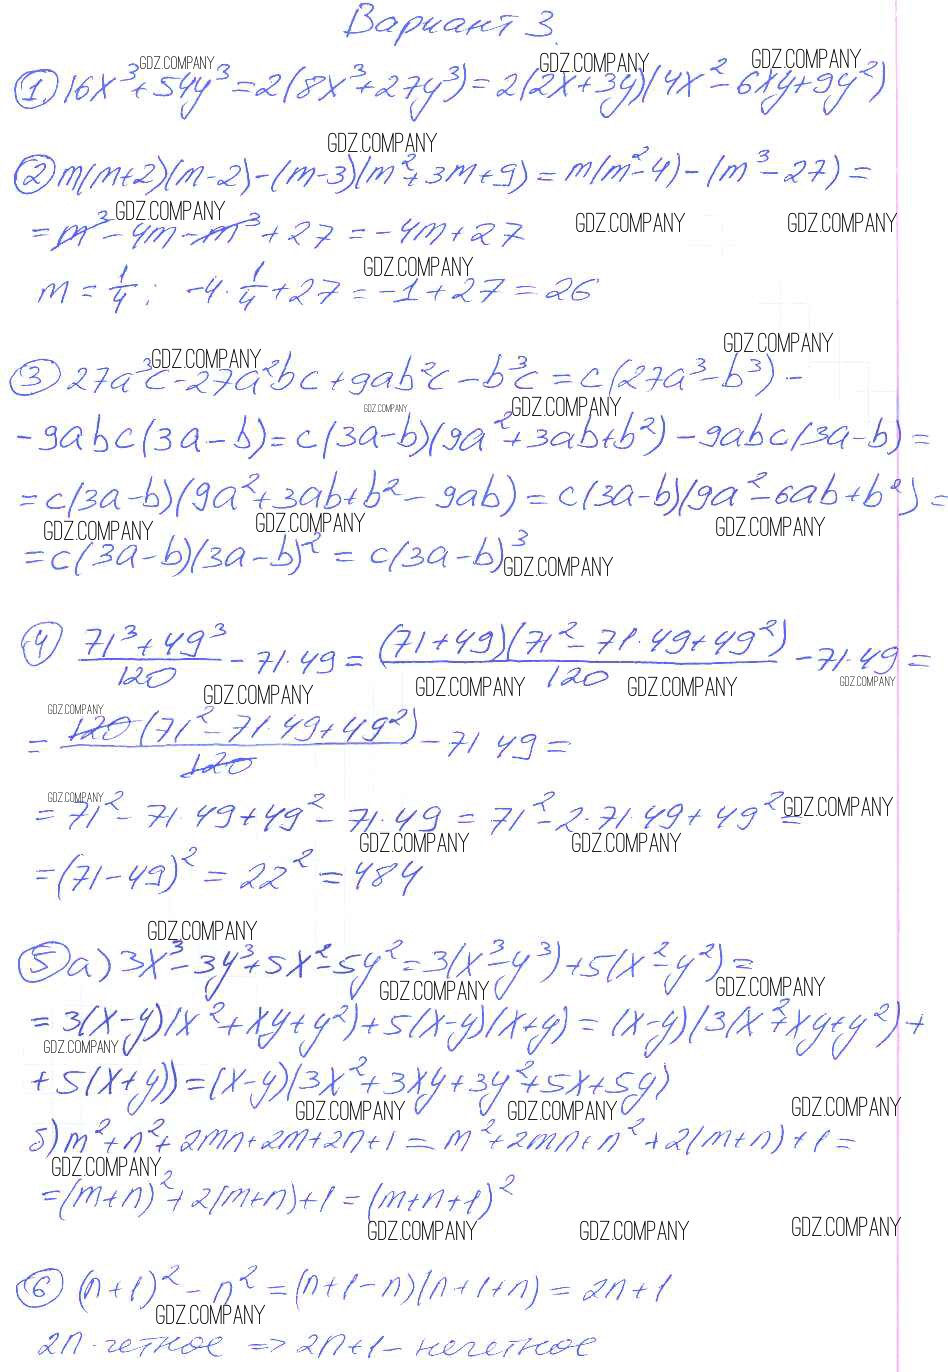 Вариант 3.
GDZ.COMPANY GDZ.COMPANY GDZ.COMPANY
① 16x³+54y³=2(8x³+27y³)=2(2x+3y)(4x²-6xy+9y²)
GDZ.COMPANY
② m(m+2)(m-2)-(m-3)(m²+3m+9)=m(m²-4)-(m³-27)=
GDZ.COMPANY GDZ.COMPANY GDZ.COMPANY
=m³-4m-m³+27=-4m+27
GDZ.COMPANY
m=1/4; -4·1/4+27=-1+27=26
GDZ.COMPANY GDZ.COMPANY
③ 27a³c-27a²bc+9ab²c-b³c=c(27a³-b³)-
GDZ.COMPANY GDZ.COMPANY
-9abc(3a-b)=c(3a-b)(9a²+3ab+b²)-9abc(3a-b)=
=c(3a-b)(9a²+3ab+b²-9ab)=c(3a-b)(9a²-6ab+b²)=
GDZ.COMPANY GDZ.COMPANY GDZ.COMPANY
=c(3a-b)(3a-b)²=c(3a-b)³
GDZ.COMPANY
④ (71³+49³)/120-71·49=(71+49)(71²-71·49+49²)/120-71·49=
GDZ.COMPANY GDZ.COMPANY GDZ.COMPANY GDZ.COMPANY
GDZ.COMPANY
=120(71²-71·49+49²)/120-71·49=
GDZ.COMPANY GDZ.COMPANY
=71²-71·49+49²-71·49=71²-2·71·49+49²=
GDZ.COMPANY GDZ.COMPANY
=(71-49)²=22²=484
GDZ.COMPANY
⑤ а) 3x³-3y³+5x²-5y²=3(x³-y³)+5(x²-y²)=
GDZ.COMPANY GDZ.COMPANY
=3(x-y)(x²+xy+y²)+5(x-y)(x+y)=(x-y)(3(x²+xy+y²)+
GDZ.COMPANY
+5(x+y))=(x-y)(3x²+3xy+3y²+5x+5y)
GDZ.COMPANY GDZ.COMPANY GDZ.COMPANY
б) m²+n²+2mn+2m+2n+1=m²+2mn+n²+2(m+n)+1=
GDZ.COMPANY
=(m+n)²+2(m+n)+1=(m+n+1)²
GDZ.COMPANY GDZ.COMPANY GDZ.COMPANY
⑥ (n+1)²-n²=(n+1-n)(n+1+n)=2n+1
GDZ.COMPANY
2n-четное => 2n+1-нечетное